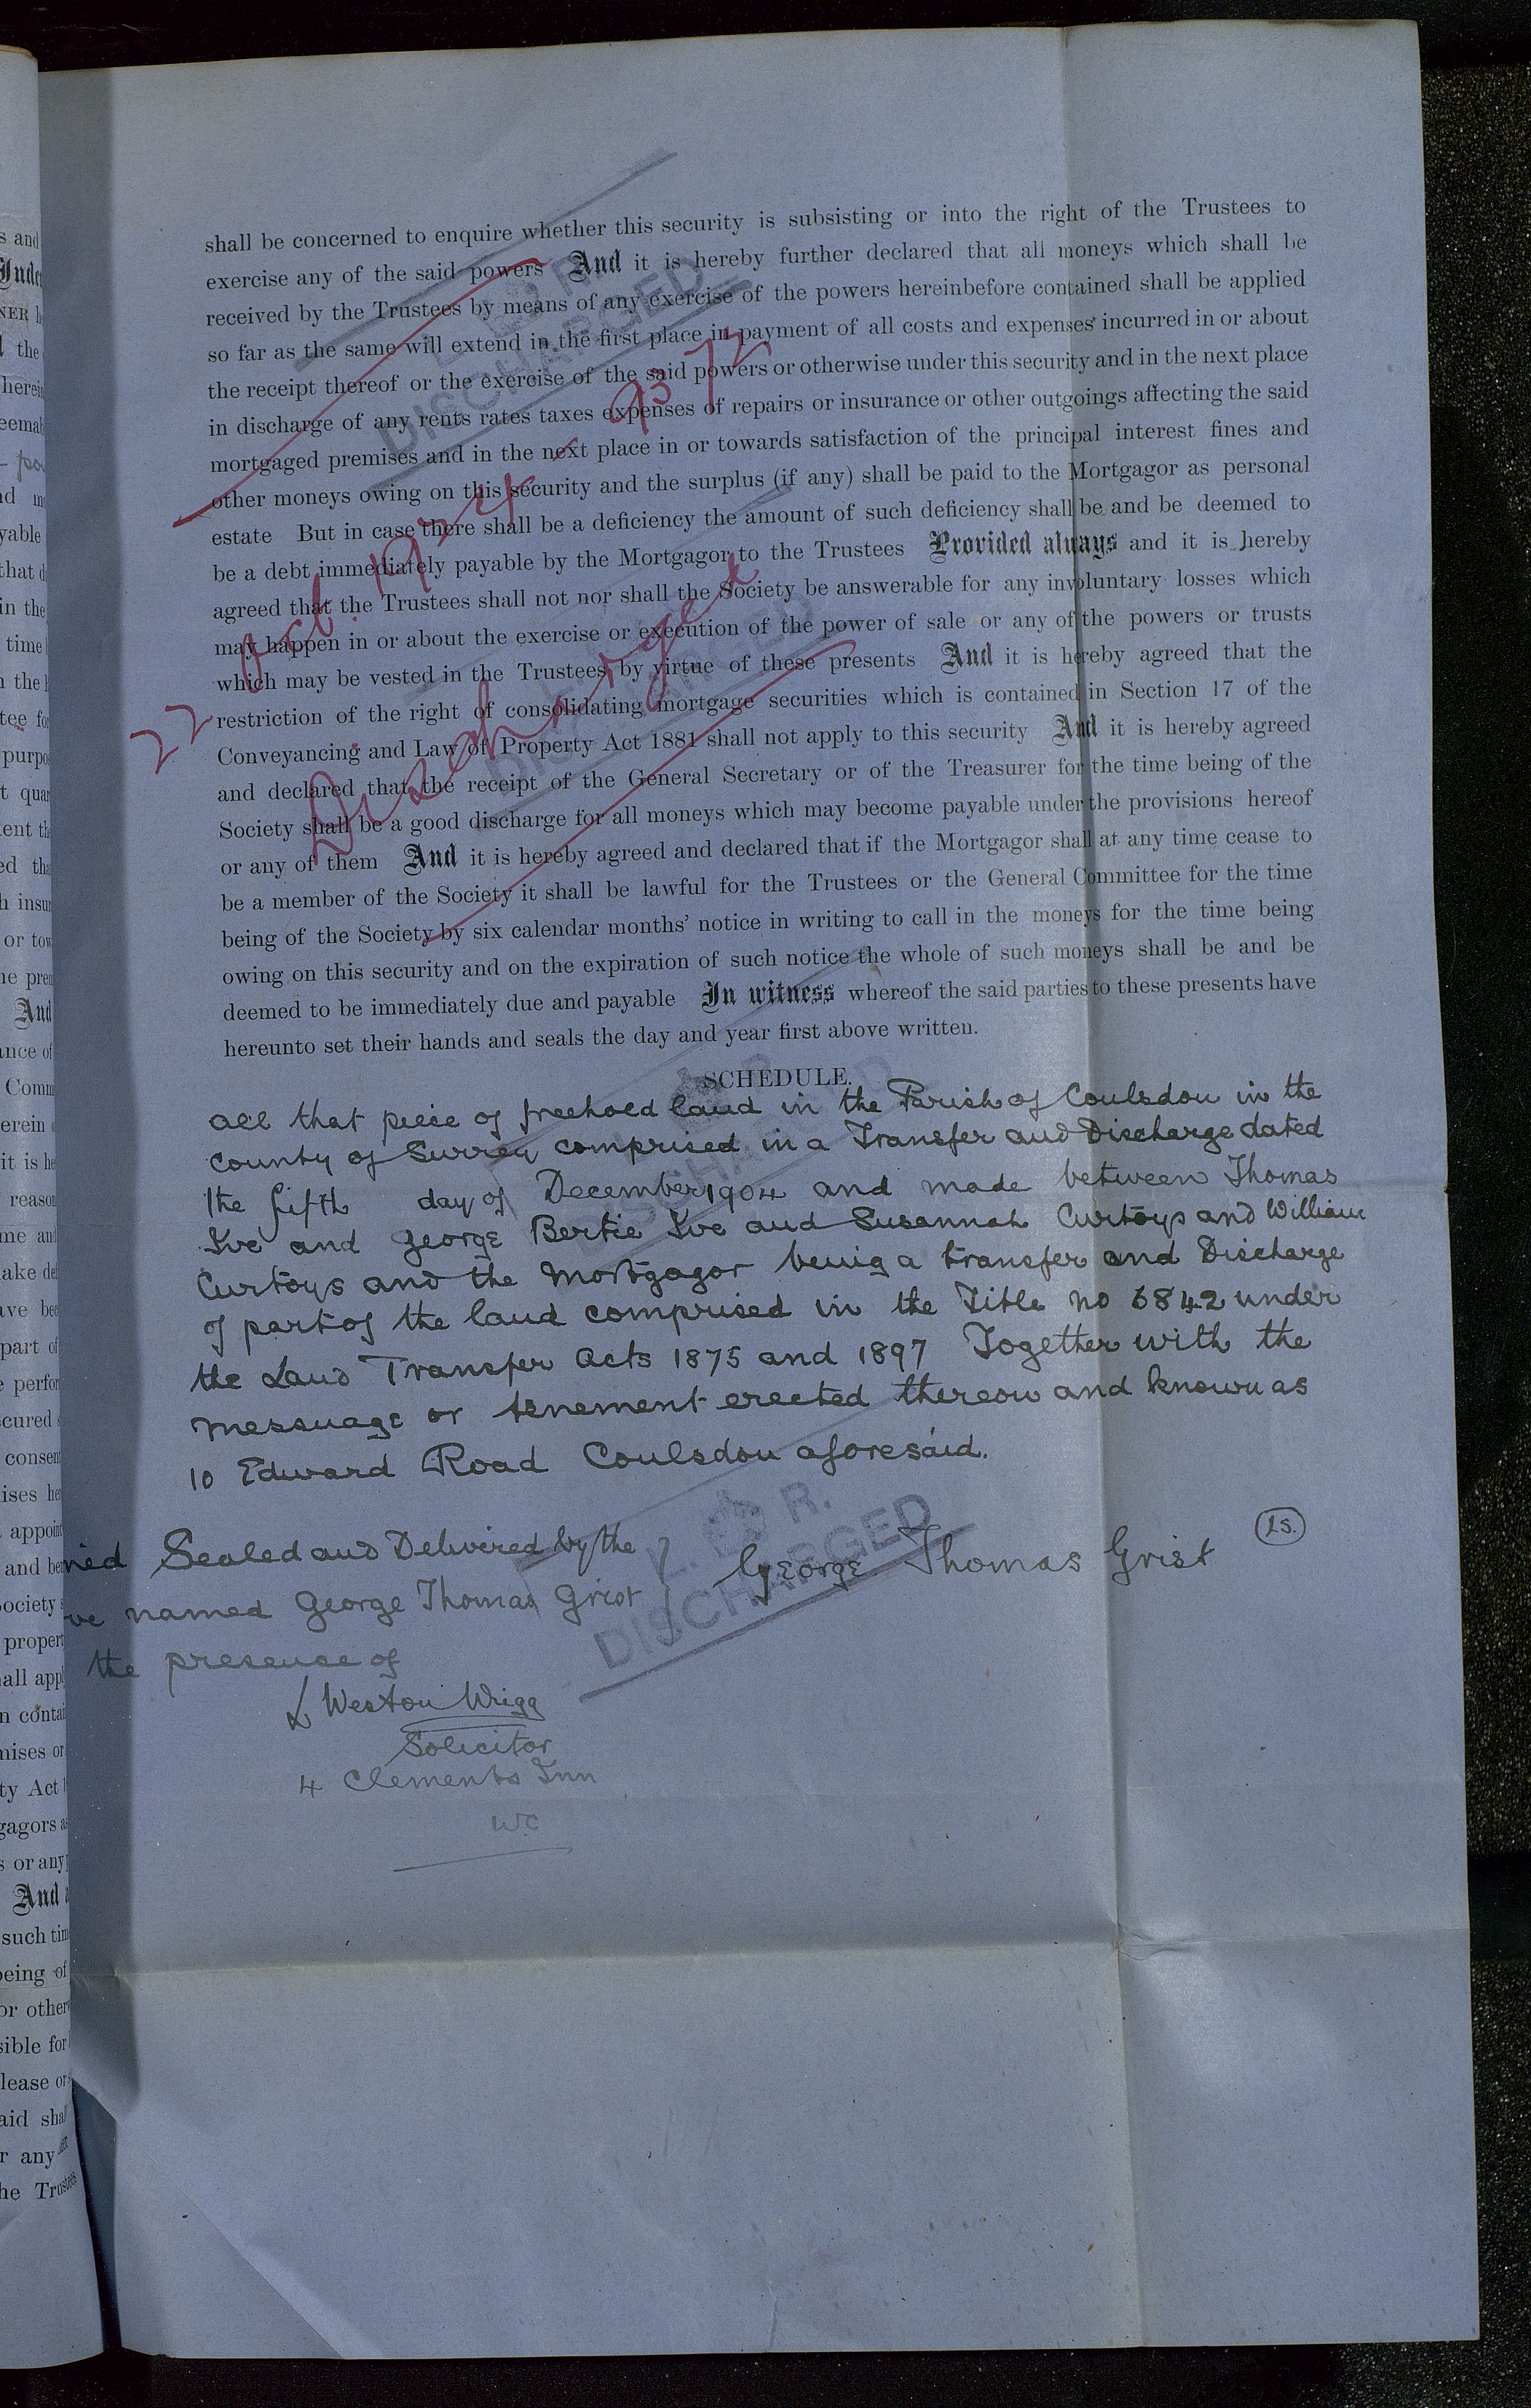 shall be concerned to enquire whether this security is subsisting or into the right of the Trustees to
exercise any of the said powers And it is hereby further declared that all moneys which shall be
received by the Trustees by means of any exercise of the powers hereinbefore contained shall be applied
so far as the same will extend in the first place in payment of all costs and expenses incurred in or about
the receipt thereof or the exercise of the said powers or otherwise under this security and in the next place
in discharge of any rents rates taxes expenses of repairs or insurance or other outgoings affecting the said
mortgaged premises and in the next place in or towards satisfaction of the principal interest fines and
other moneys owing on this security and the surplus (if any) shall be paid to the Mortgagor as personal
estate But in case there shall be a deficiency the amount of such deficiency shall be and be deemed to
be a debt immediately payable by the Mortgagor to the Trustees Provided always and it is hereby
agreed that the Trustees shall not nor shall the Society be answerable for any involuntary losses which
may happen in or about the exercise or execution of the power of sale or any of the powers or trusts
which may be vested in the Trustees by virtue of these presents And it is hereby agreed that the
restriction of the right of consolidating mortgage securities which is contained in Section 17 of the
Conveyancing and Law of Property Act 1881 shall not apply to this security And it is hereby agreed
and declared that the receipt of the General Secretary or of the Treasurer for the time being of the
Society shall be a good discharge for all moneys which may become payable under the provisions hereof
or any of them And it is hereby agreed and declared that if the Mortgagor shall at any time cease to
be a member of the Society it shall be lawful for the Trustees or the General Committee for the time
being of the Society by six calendar months' notice in writing to call in the moneys for the time being
owing on this security and on the expiration of such notice the whole of such moneys shall be and be
deemed to be immediately due and payable In witness whereof the said parties to these presents have
hereunto set their hands and seals the day and year first above written.
SCHEDULE.
All that piece of freehold land in the Parish of Coulsdon in the
County of Surrey comprised in a Transfer and Discharge dated
the fifth day of December 1904 and made between Thomas
Ive and George Bertie Ive and Susannah Curtoys and William
Curtoys and the Mortgagor being a transfer and Discharge
of part of the land comprised in the Title no 6842 under
the Land Transfer Acts 1875 and 1897 Together with the
messuage or tenement erected thereon and known as
10 Edward Road Coulsdon aforesaid.
ned Sealed and Delivered by the
ve named George Thomas Grist
the presence of
George Thomas Grist
LS.
Weston Wrigg
Solicitor
4 Clements Inn
WC
Discharged
22
DISCHARGED
DISCHARGED
DISCHARGED
L. R.
DISCHARGED